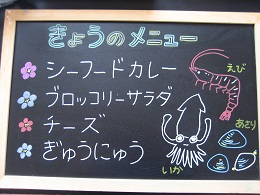 きょうのメニュー
シーフードカレー
ブロッコリーサラダ
チーズ
ぎゅうにゅう
えび
あさり
いか